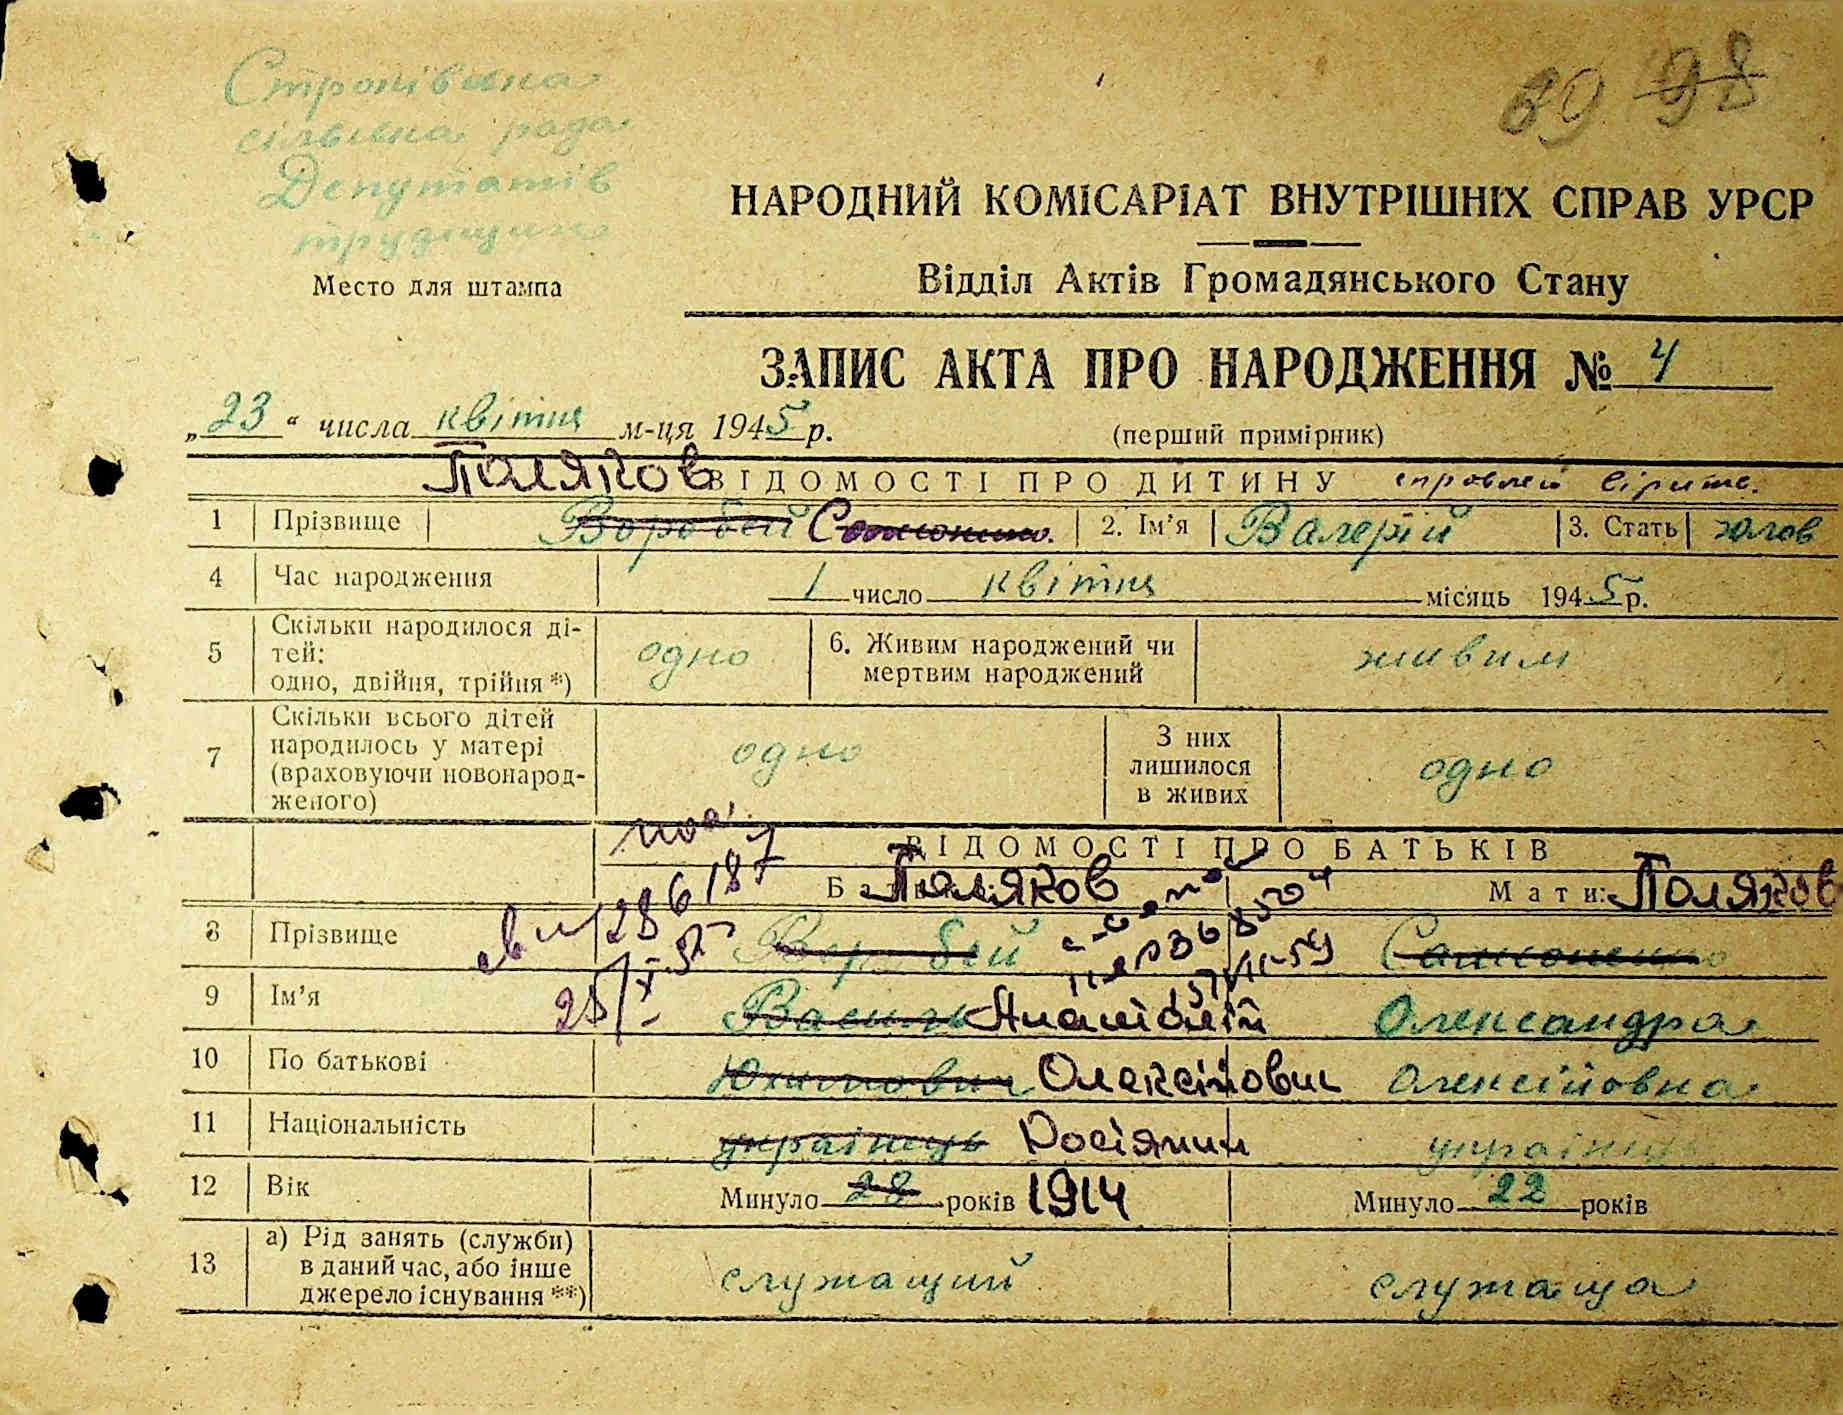 сільська рада
Депутатів
трудящих
89 98
НАРОДНИЙ КОМІСАРІАТ ВНУТРІШНІХ СПРАВ УРСР
Место для штампа
Відділ Актів Громадянського Стану
ЗАПИС АКТА ПРО НАРОДЖЕННЯ № 4
„23“ числа квітня м-ця 1945 р.
(перший примірник)
Поляков ВІДОМОСТІ ПРО ДИТИНУ
1 Прізвище Воробей 2. Ім'я Валерій 3. Стать
4 Час народження 1 число квітня місяць 1945 р.
5 Скільки народилося ді-
тей:
одно, двійня, трійня *) одно 6. Живим народжений чи
мертвим народжений живим
7 Скільки всього дітей
народилось у матері
(враховуючи новонарод-
женого) одно З них
лишилося
в живих одно
ВІДОМОСТІ ПРО БАТЬКІВ
Поляков Мати: Поляков
8 Прізвище
9 Ім'я Василь Анатолій Олександра
10 По батькові Олексійович Олексіївна
11 Національність українець Росіянин
12 Вік Минуло 28 років 1914 Минуло 22 років
13 а) Рід занять (служби)
в даний час, або інше
джерело існування **) служащий служаща